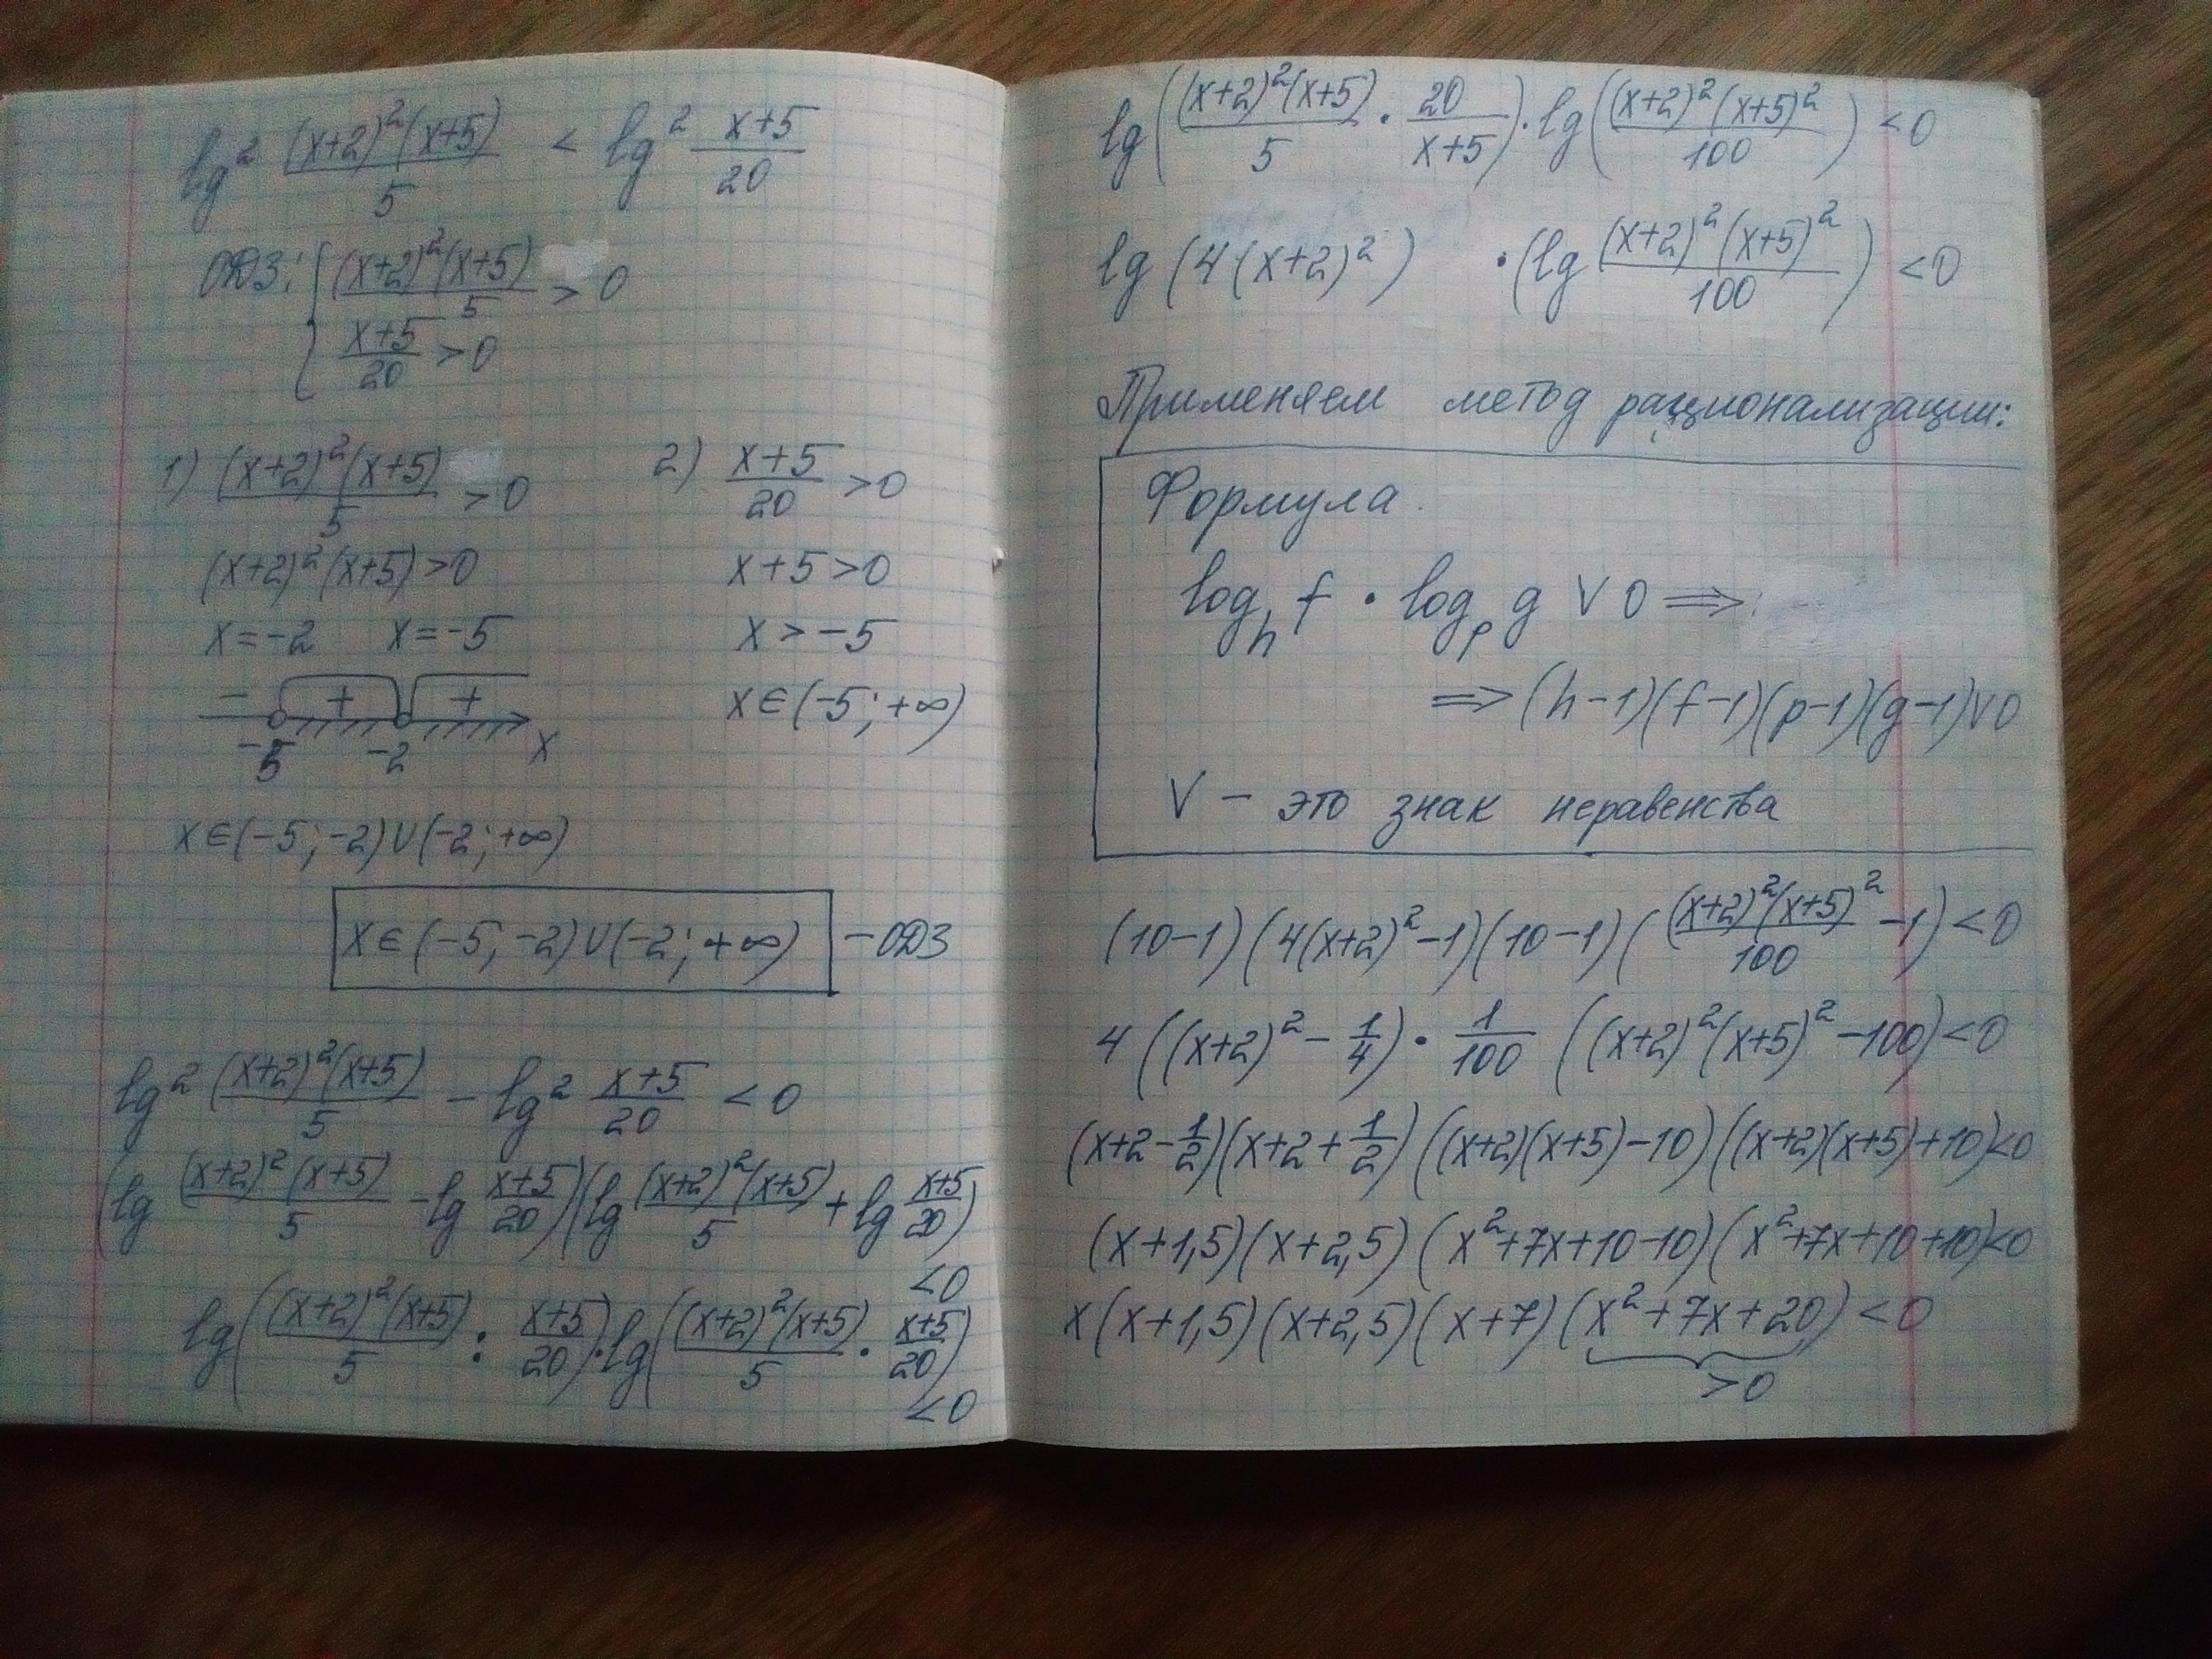 lg² (x+2)²(x+5)/5 < lg² (x+5)/20
ОДЗ: { (x+2)²(x+5)/5 > 0
(x+5)/20 > 0
1) (x+2)²(x+5)/5 > 0
(x+2)²(x+5) > 0
x = -2 x = -5
- + +
-5 -2 x
x ∈ (-5; -2) ∪ (-2; +∞)
2) (x+5)/20 > 0
x + 5 > 0
x > -5
x ∈ (-5; +∞)
x ∈ (-5; -2) ∪ (-2; +∞) - ОДЗ
lg² (x+2)²(x+5)/5 - lg² (x+5)/20 < 0
(lg (x+2)²(x+5)/5 - lg (x+5)/20)(lg (x+2)²(x+5)/5 + lg (x+5)/20) < 0
lg((x+2)²(x+5)/5 : (x+5)/20) · lg((x+2)²(x+5)/5 · (x+5)/20) < 0
lg((x+2)²(x+5)/5 · 20/(x+5)) · lg((x+2)²(x+5)²/100) < 0
lg (4(x+2)²) · (lg (x+2)²(x+5)²/100) < 0
Применяем метод рационализации:
Формула.
log_h f · log_p g V 0 ⇒
⇒ (h-1)(f-1)(p-1)(g-1) V 0
V - это знак неравенства
(10-1)(4(x+2)²-1)(10-1)((x+2)²(x+5)²/100 - 1) < 0
4((x+2)² - 1/4) · 1/100 ((x+2)²(x+5)² - 100) < 0
(x+2-1/2)(x+2+1/2)((x+2)(x+5)-10)((x+2)(x+5)+10) < 0
(x+1,5)(x+2,5)(x²+7x+10-10)(x²+7x+10+10) < 0
x(x+1,5)(x+2,5)(x+7)(x²+7x+20) < 0
> 0